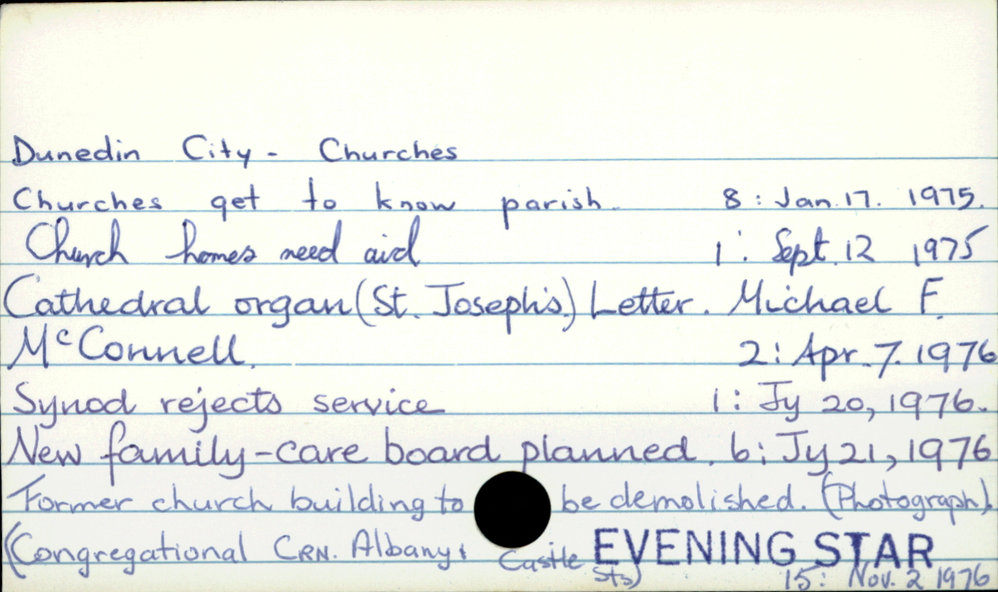 Dunedin City - Churches
Churches get to know parish. 8: Jan. 17. 1975.
Church homes need aid 1: Sept. 12 1975
Cathedral organ (St. Joseph's.) Letter. Michael F.
McConnell. 2: Apr. 7. 1976
Synod rejects service 1: Jy 20, 1976.
New family-care board planned. 6: Jy 21, 1976
Former church building to be demolished. (Photograph).
(Congregational CRN. Albany & Castle EVENING STAR
Sts) 15: Nov. 2 1976